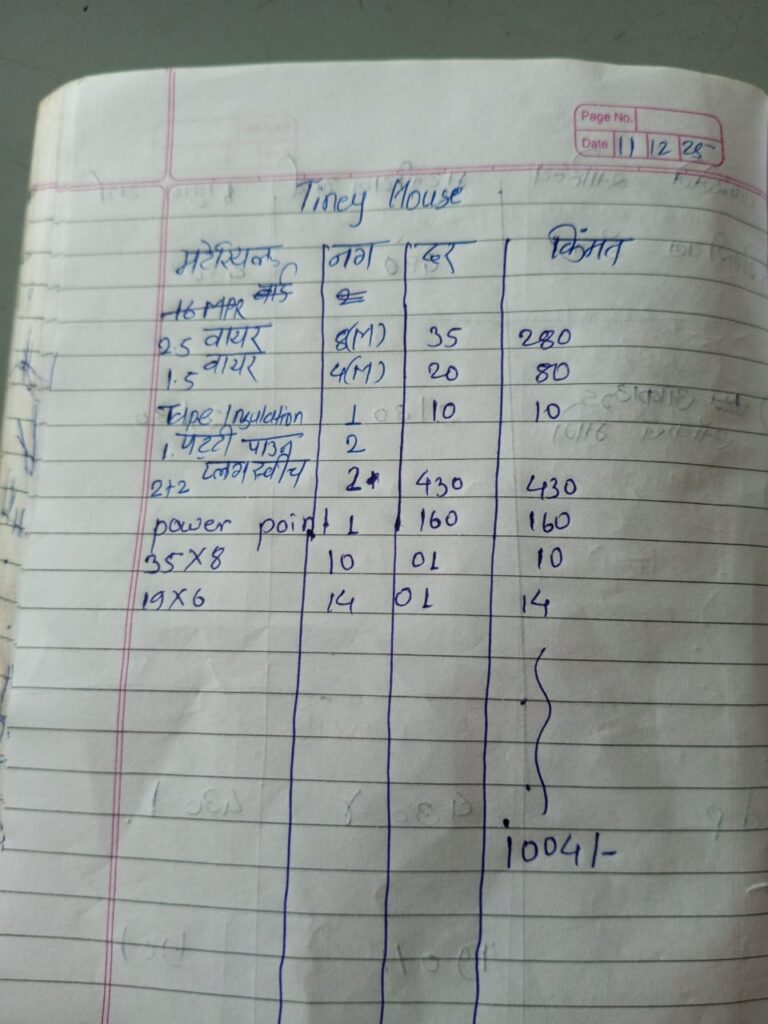 Page No.
Date 11 12 25
Tiney House
मटेरियल नग दर किंमत
16 MPR बोर्ड 2
2.5 वायर 8(M) 35 280
1.5 वायर 4(M) 20 80
Tape Insulation 1 10 10
1. पट्टी 2
2+2 प्लग स्वीच 2 430 430
power point 1 160 160
35X8 10 01 10
19X6 14 01 14
1004/-